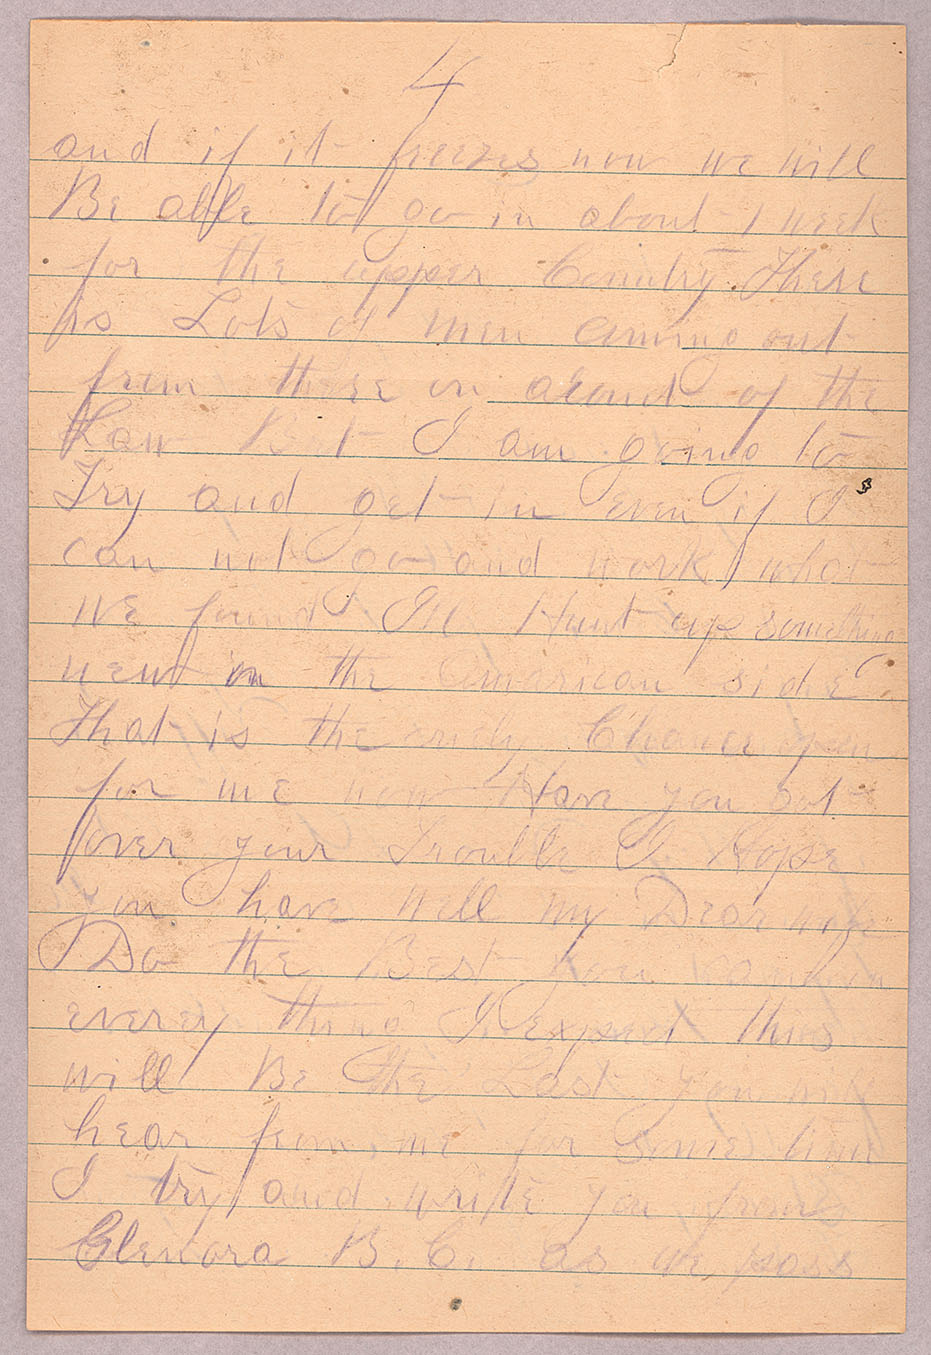 4
and if it freezes now we will
Be able to go in about 1 week
for the upper Country There
is Lots of men coming out
from there on acount of the
Law But I am going to
Try and get in even if I
can not go and work what
we found I'll Hunt up something
new on the American side
That is the only Chance
for me now Have you got
over your Trouble I Hope
you have well my Dear wife
Do the Best you can in
everey thing I expect this
will Be the Last you will
hear from me for some time
I try and write you from
Glenora B.C. as we pass